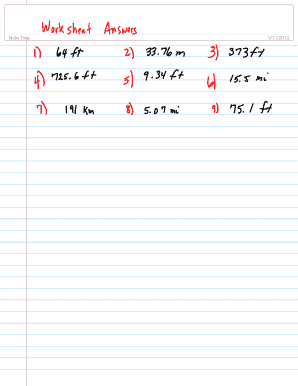 Worksheet Answers
Note Title
1) 64 ft 2) 33.76 m 3) 373 ft
4) 725.6 ft 5) 9.34 ft 6) 15.5 mi
7) 191 km 8) 5.07 mi 9) 75.1 ft